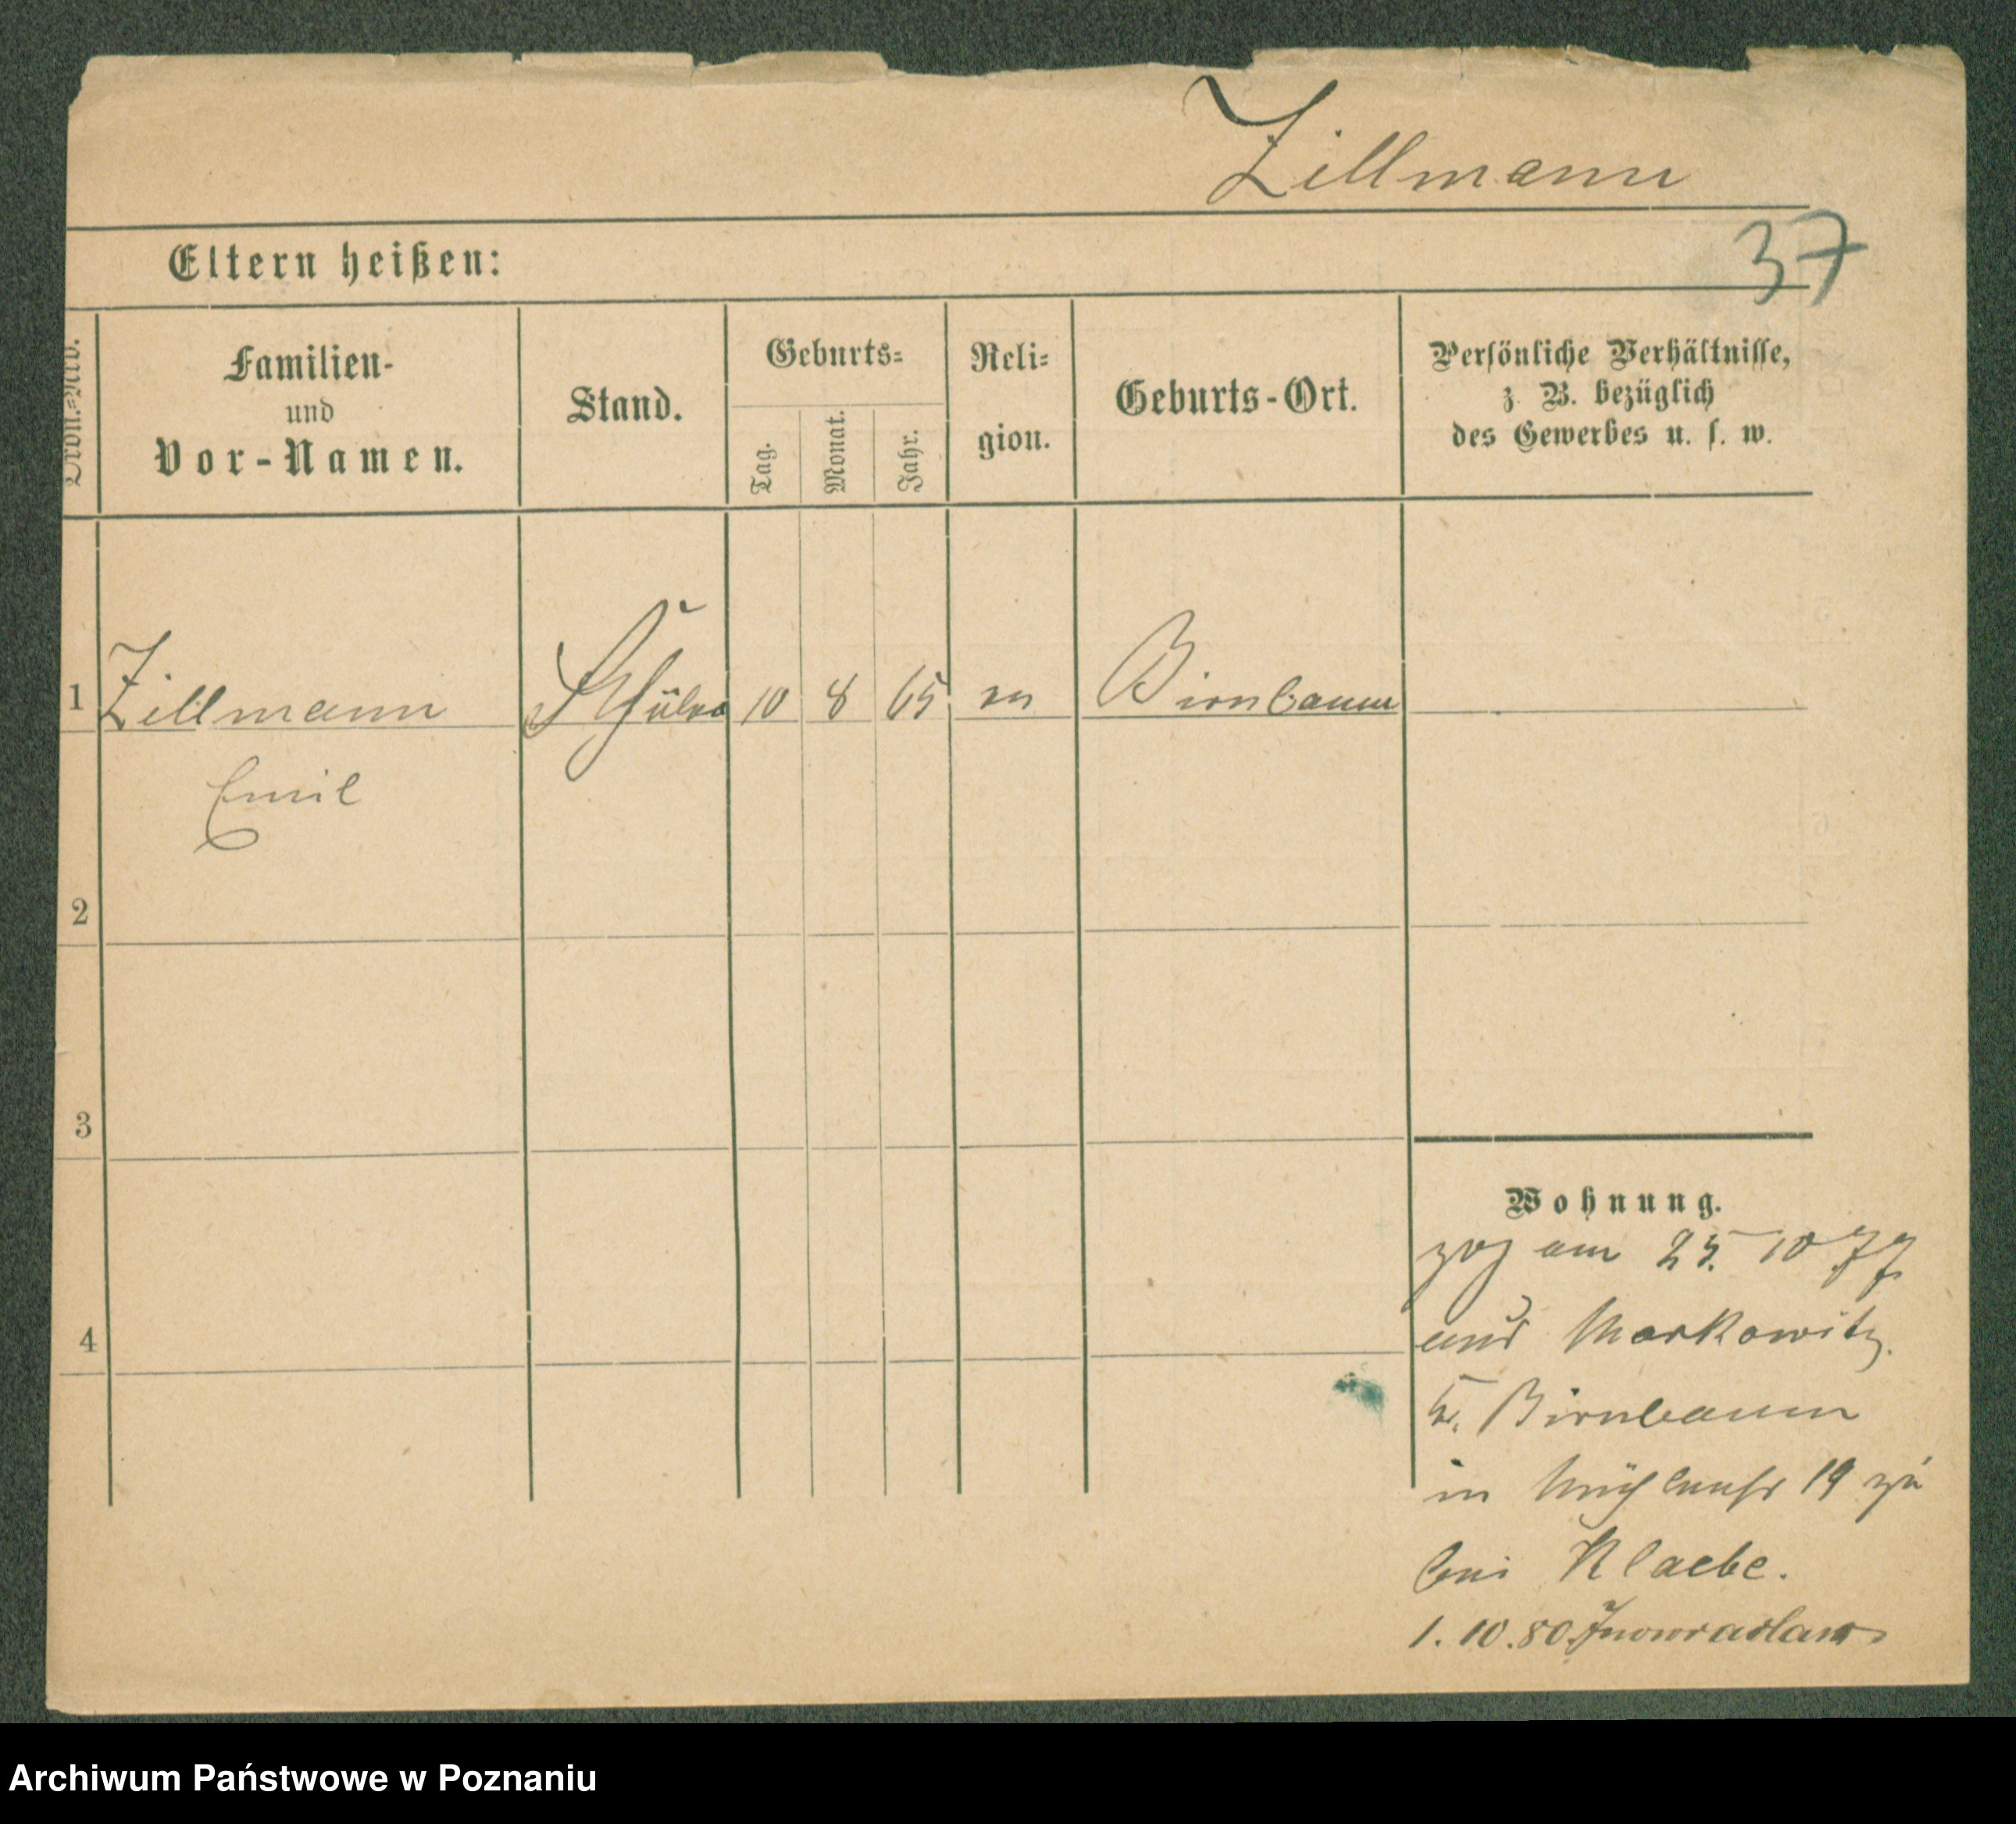 Zillmann
37
Eltern heißen:
Ordn.=Nro.
Familien-
und
Vor-Namen.
Stand.
Geburts=
Tag.
Monat.
Jahr.
Reli=
gion.
Geburts-Ort.
Persönliche Verhältnisse,
z. B. bezüglich
des Gewerbes u. s. w.
1 Zillmann Schüler 10 8 65 ev Birnbaum
Emil
2
3
4
Wohnung.
zog am 25. 10 77
aus Markowitz
Kr. Birnbaum
in Mühlenstr 19 zu
bei Klaebe.
1. 10. 80. Inowraslaw
Archiwum Państwowe w Poznaniu